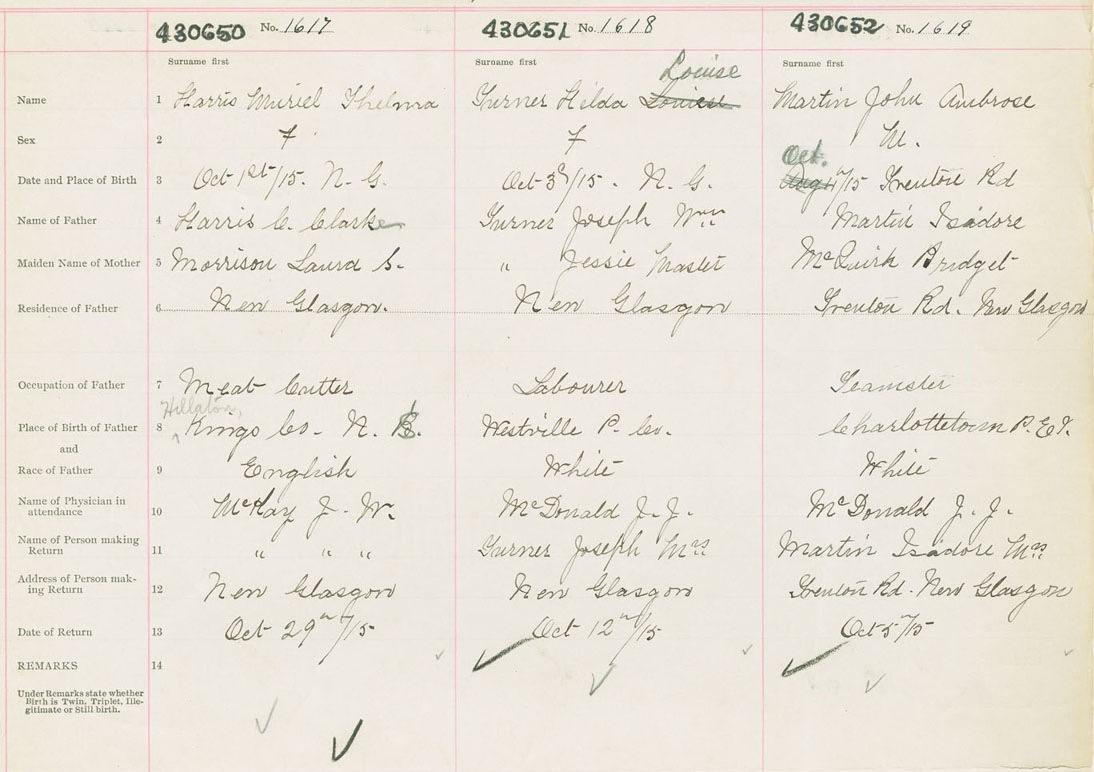 430650 No. 1617 430651 No. 1618 430652 No. 1619
Surname first Surname first Surname first
Louise
Name 1 Harris Muriel Thelma Turner Hilda Martin John Ambrose
Sex 2 F F M.
Oct.
Date and Place of Birth 3 Oct 1st/15. N. G. Oct 3d/15. N. G. Aug 4th/15 Trenton Rd
Name of Father 4 Harris C. Clarke Turner Joseph Wm Martin Isadore
Maiden Name of Mother 5 Morrison Laura S. " Jessie Master McQuirk Bridget
Residence of Father 6 New Glasgow. New Glasgow Trenton Rd. New Glasgow
Occupation of Father 7 Meat Cutter Labourer Teamster
Hillaton,
Place of Birth of Father 8 Kings Co. N. S. Westville P. Co. Charlottetown P.E.I.
and
Race of Father 9 English White White
Name of Physician in
attendance 10 McKay J. W. McDonald J. J. McDonald J. J.
Name of Person making
Return 11 " " " Turner Joseph Mrs Martin Isadore Mrs
Address of Person mak-
ing Return 12 New Glasgow New Glasgow Trenton Rd. New Glasgow
Date of Return 13 Oct 29th/15 Oct 12th/15 Oct 5th/15
REMARKS 14
Under Remarks state whether
Birth is Twin, Triplet, Ille-
gitimate or Still-birth.